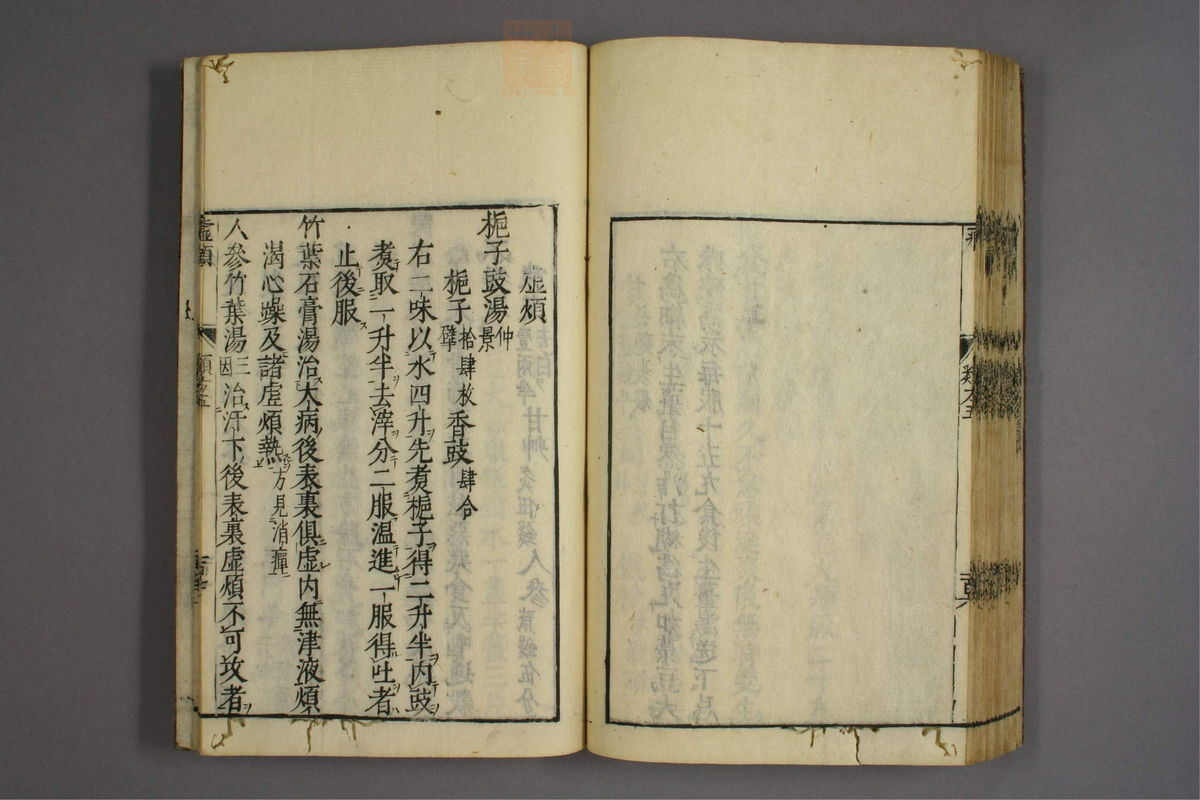 虛煩
梔子豉湯仲景
梔子拾肆枚擘香豉肆合
右二味以水四升先煑梔子得二升半内豉
煑取一升半去滓分二服溫進一服得吐者
止後服
竹葉石膏湯治大病後表裏俱虛内無津液煩
渴心躁及諸虛煩熱方見消癉
人參竹葉湯三因治汗下後表裏虛煩不可攻者
虛煩